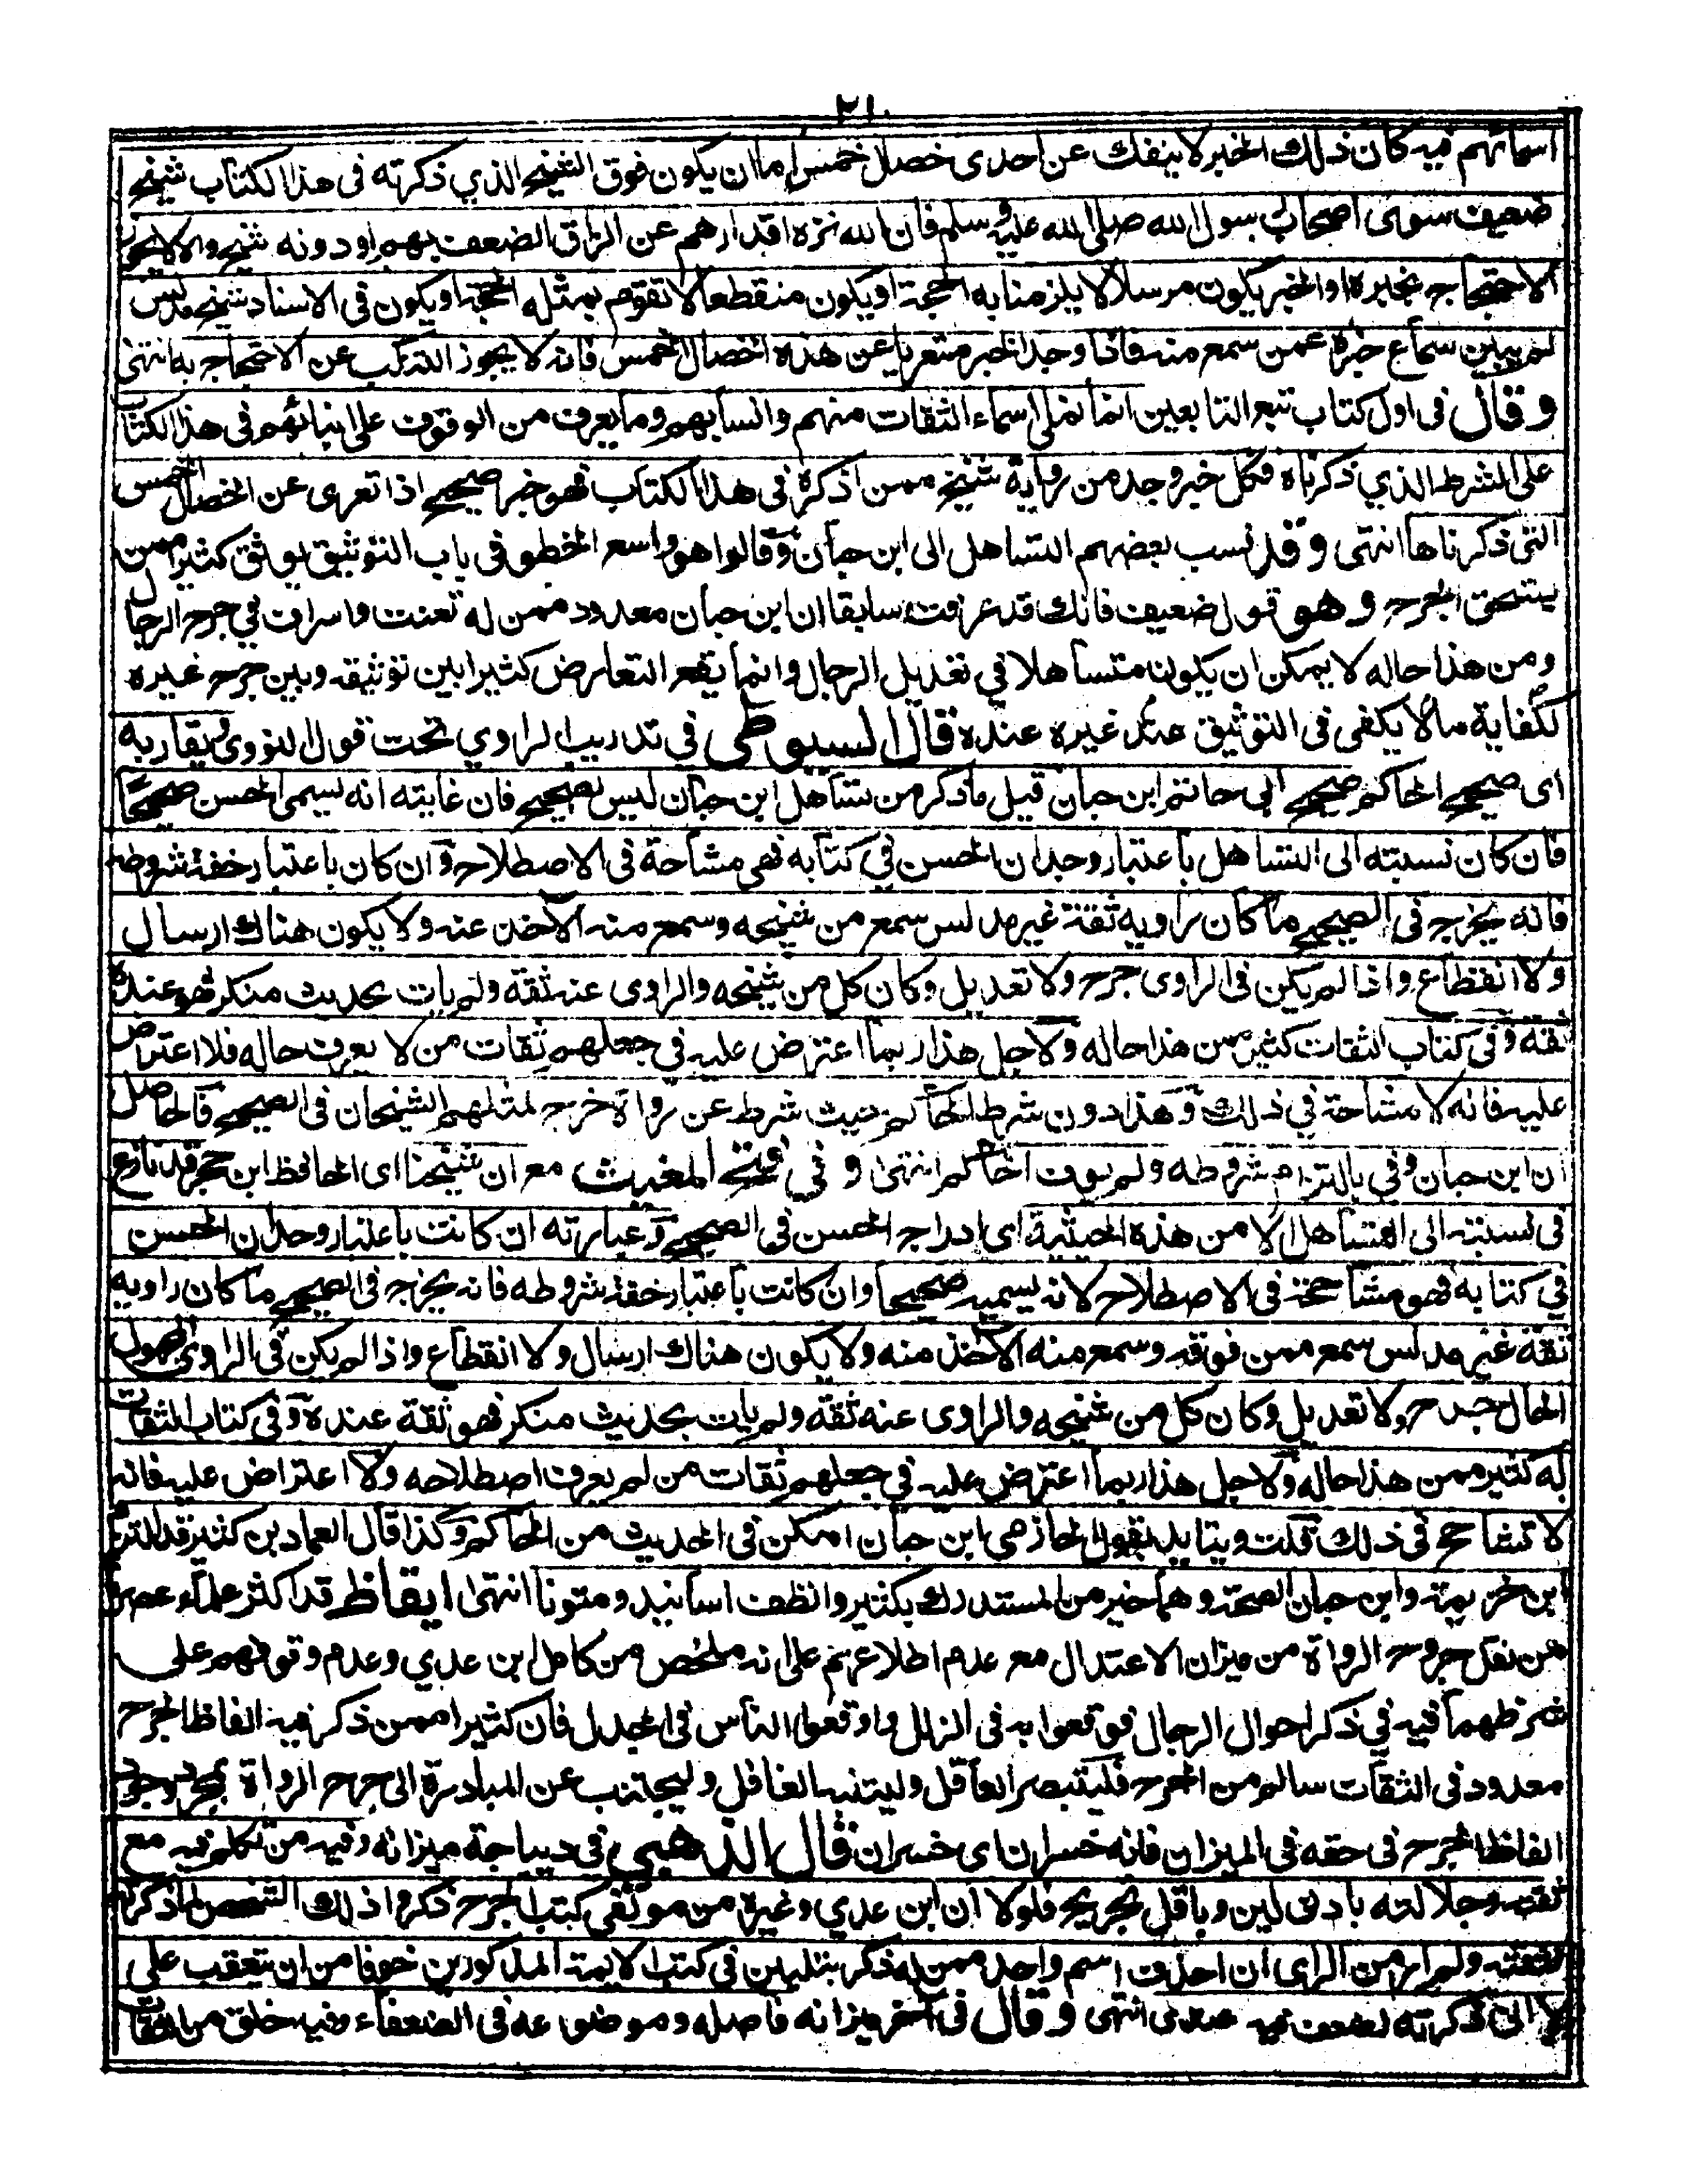 ٢١
اسمائهم فيه كان ذلك الخبر لا ينفك عن احدى خصال خمس اما ان يكون فوق الشيخ الذي ذكرته فى هذا الكتاب شيخ
ضعيف سوى اصحاب رسول الله صلى الله عليه وسلم فان الله نزه اقدارهم عن الزاق الضعف بهم او دونه شيخ واه لا يجوز
الاحتجاج بخبره او الخبر يكون مرسلا لا يلزمنا به الحجة او يكون منقطعا لا تقوم بمثله الحجة او يكون فى الاسناد شيخ مدلس
لم يبين سماع خبره عمن سمع منه فاذا وجد الخبر متعريا عن هذه الخصال الخمس فانه لا يجوز التنكب عن الاحتجاج به انتهى
وقال فى اول كتاب تبع التابعين انما نملى اسماء الثقات منهم وانسابهم وما يعرف من الوقوف على انبائهم فى هذا الكتاب
على الشرط الذي ذكرناه فكل خبر وجد من رواية شيخ ممن اذكره فى هذا الكتاب فهو خبر صحيح اذا تعرى عن الخصال الخمس
التى ذكرناها انتهى وقد نسب بعضهم التساهل الى ابن حبان وقالوا هو واسع الخطو فى باب التوثيق يوثق كثيرا ممن
يستحق الجرح وهو قول ضعيف فانك قد عرفت سابقا ان ابن حبان معدود ممن له تعنت واسراف في جرح الرجال
ومن هذا حاله لا يمكن ان يكون متساهلا في تعديل الرجال وانما يقع التعارض كثيرا بين توثيقه وبين جرح غيره
لكفاية ما لا يكفى فى التوثيق عند غيره عنده قال السيوطى في تدريب الراوي تحت قول النووى ويقاربه
اى صحيح الحاكم صحيح ابى حاتم ابن حبان قيل ما ذكر من تساهل ابن حبان ليس بصحيح فان غايته انه يسمى الحسن صحيحا
فان كان نسبته الى التساهل باعتبار وجدان الحسن في كتابه فهى مشاحة فى الاصطلاح وان كان باعتبار خفة شروطه
فانه يخرج فى الصحيح ما كان راويه ثقة غير مدلس سمع من شيخه وسمع منه الآخذ عنه ولا يكون هناك ارسال
ولا انقطاع واذا لم يكن فى الراوى جرح ولا تعديل وكان كل من شيخه والراوى عنه ثقة ولم يات بحديث منكر فهو عنده
ثقة وفى كتاب الثقات كثير ممن هذا حاله ولاجل هذا ربما اعترض عليه في جعلهم ثقات من لا يعرف حاله فلا اعتراض
عليه فانه لا مشاحة في ذلك وهذا دون شرط الحاكم حيث شرط عن رواة خرج لمثلهم الشيخان فى الصحيح فالحاصل
ان ابن حبان وفي بالتزام شروطه ولم يوف الحاكم انتهى وفي فتح المغيث مع ان شيخنا اى الحافظ ابن حجر قد نازع
فى نسبته الى التساهل الا من هذه الحيثية اى ادراج الحسن فى الصحيح وعبارته ان كانت باعتبار وجدان الحسن
في كتابه فهو مشاححة فى الاصطلاح لانه يسميه صحيحا وان كانت باعتبار خفة شروطه فانه يخرج فى الصحيح ما كان راويه
ثقة غير مدلس سمع ممن فوقه وسمع منه الآخذ منه ولا يكون هناك ارسال ولا انقطاع واذا لم يكن فى الراوى المجهول
الحال جرح ولا تعديل وكان كل من شيخه والراوى عنه ثقة ولم يات بحديث منكر فهو ثقة عنده وفى كتاب الثقات
له كثير ممن هذا حاله ولاجل هذا ربما اعترض عليه في جعلهم ثقات من لم يعرف اصطلاحه ولا اعتراض عليه فانه
لا تشاحح فى ذلك قلت ويتايد بقول الحازمى ابن حبان امكن فى الحديث من الحاكم وكذا قال العماد بن كثير قد التزم
ابن خزيمة وابن حبان الصحة وهما خير من المستدرك بكثير وانظف اسانيد ومتونا انتهى ايقاظ قد اكثر علماء عصرنا
من نقل جروح الرواة من ميزان الاعتدال مع عدم اطلاعهم على انه ملخص من كامل ابن عدي وعدم وقوفهم على
شرطهما فيه في ذكر احوال الرجال فوقعوا به فى الزلل واوقعوا الناس فى الجدل فان كثيرا ممن ذكر فيه الفاظ الجرح
معدود فى الثقات سالم من الجرح فليتبصر العاقل وليتنبه الغافل وليجتنب عن المبادرة الى جرح الرواة بمجرد وجود
الفاظ الجرح فى حقه فى الميزان فانه خسران اى خسران قال الذهبي فى ديباجة ميزانه وفيه من تكلم فيه مع
ثقته وجلالته بادنى لين وباقل تجريح فلولا ان ابن عدي وغيره من مؤلفى كتب الجرح ذكروا ذلك الشخص لما ذكرته
لثقته ولم ار من الراى ان احذف اسم واحد ممن له ذكر بتليين فى كتب الايمة المذكورين خوفا من ان يتعقب على
لا انى ذكرته لضعف فيه عندى انتهى وقال فى آخر ميزانه فاصله وموضوعه فى الضعفاء وفيه خلق من الثقات